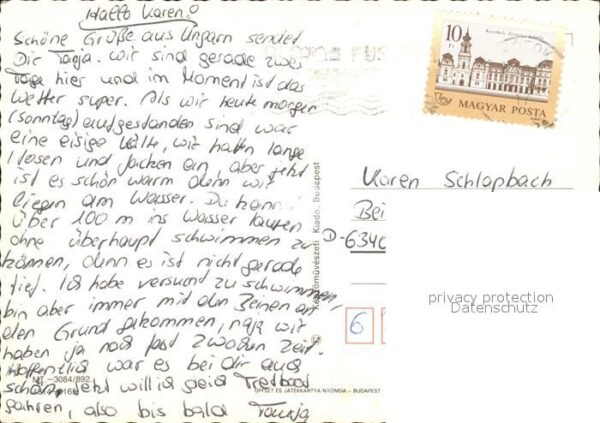 Hallo Karen!
Schöne Grüße aus Ungarn sendet
Dir Tanja. Wir sind gerade zwei
Tage hier und im Moment ist das
Wetter super. Als wir heute morgen
(Sonntag) aufgestanden sind war
eine eisige Kälte, wir hatten lange
Hosen und Jacken an, aber jetzt
ist es schön warm denn wir
liegen am Wasser. Du kannst
über 100 m ins Wasser laufen
ohne überhaupt schwimmen zu
können, denn es ist nicht gerade
tief. Ich habe versucht zu schwimmen,
bin aber immer mit den Beinen auf
den Grund gekommen, naja wir
haben ja noch fast zwo Wochen Zeit.
Hoffentlich war es bei dir auch
schön, jetzt will ich Tretboot
fahren, also bis bald Tanja
10
MAGYAR POSTA
Karen Schlapbach
Bei
D-6340
6
Képzőművészeti Kiadó, Budapest
OFFSET ÉS JÁTÉKKÁRTYA NYOMDA – BUDAPEST
MT.—3084/892.
privacy protection
Datenschutz